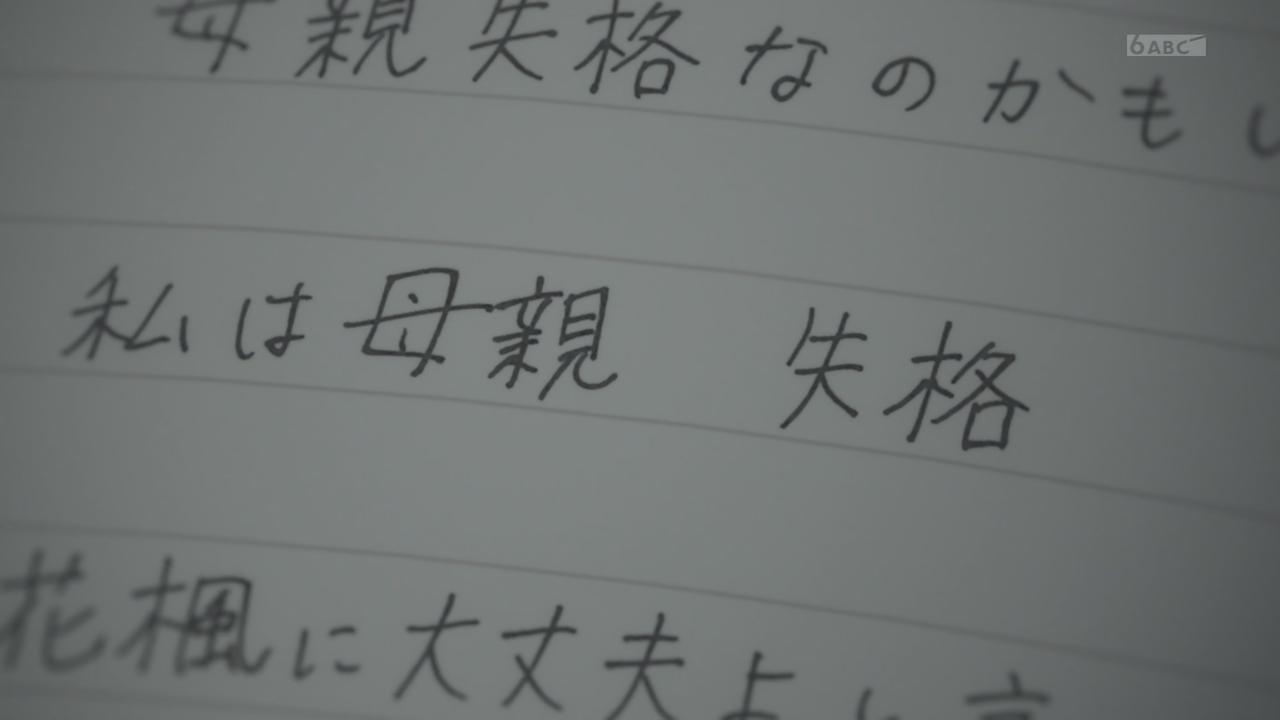 6 ABC
母親失格なのかもし
私は母親 失格
花楓に大丈夫よと言